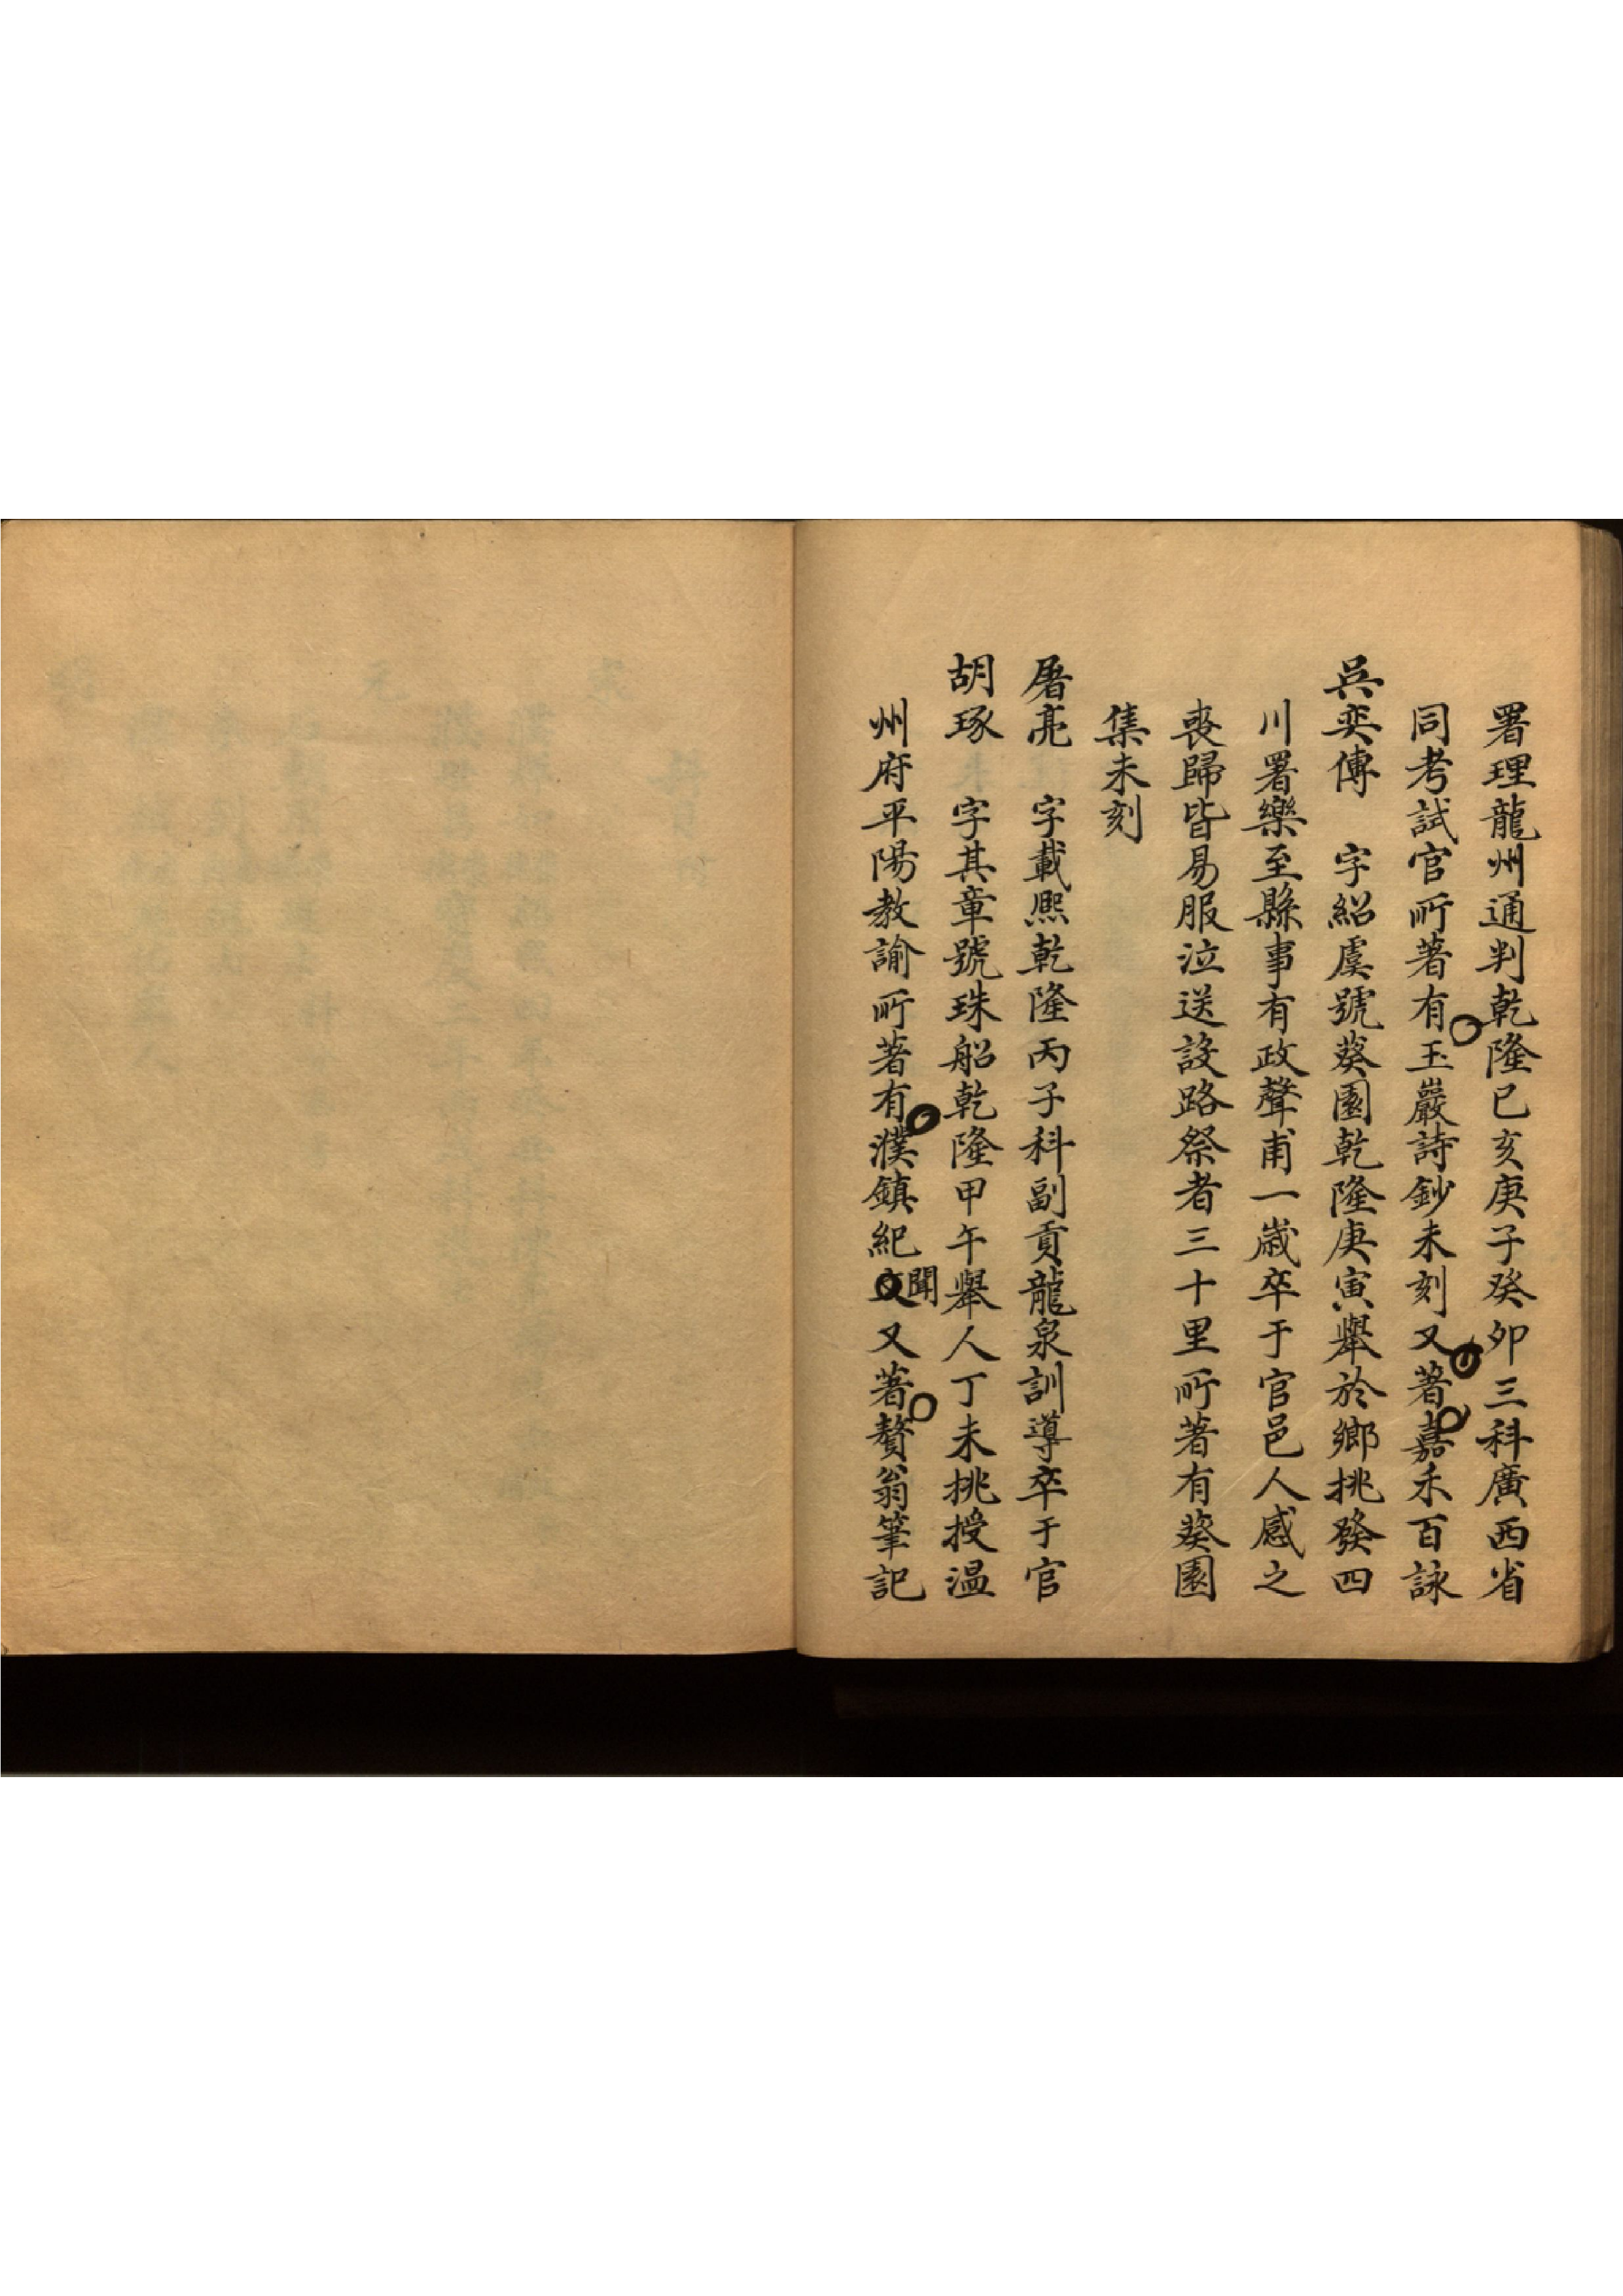 署理龍州通判乾隆已亥庚子癸卯三科廣西省
同考試官所著有玉巖詩鈔未刻又著嘉禾百詠
吳奕傳　字紹虞號葵園乾隆庚寅舉於鄉挑發四
川署樂至縣事有政聲甫一歲卒于官邑人感之
喪歸皆易服泣送設路祭者三十里所著有葵園
集未刻
屠亮　字載熙乾隆丙子科副貢龍泉訓導卒于官
胡琢　字其章號珠船乾隆甲午舉人丁未挑授温
州府平陽教諭所著有濮鎮紀文聞又著贅翁筆記